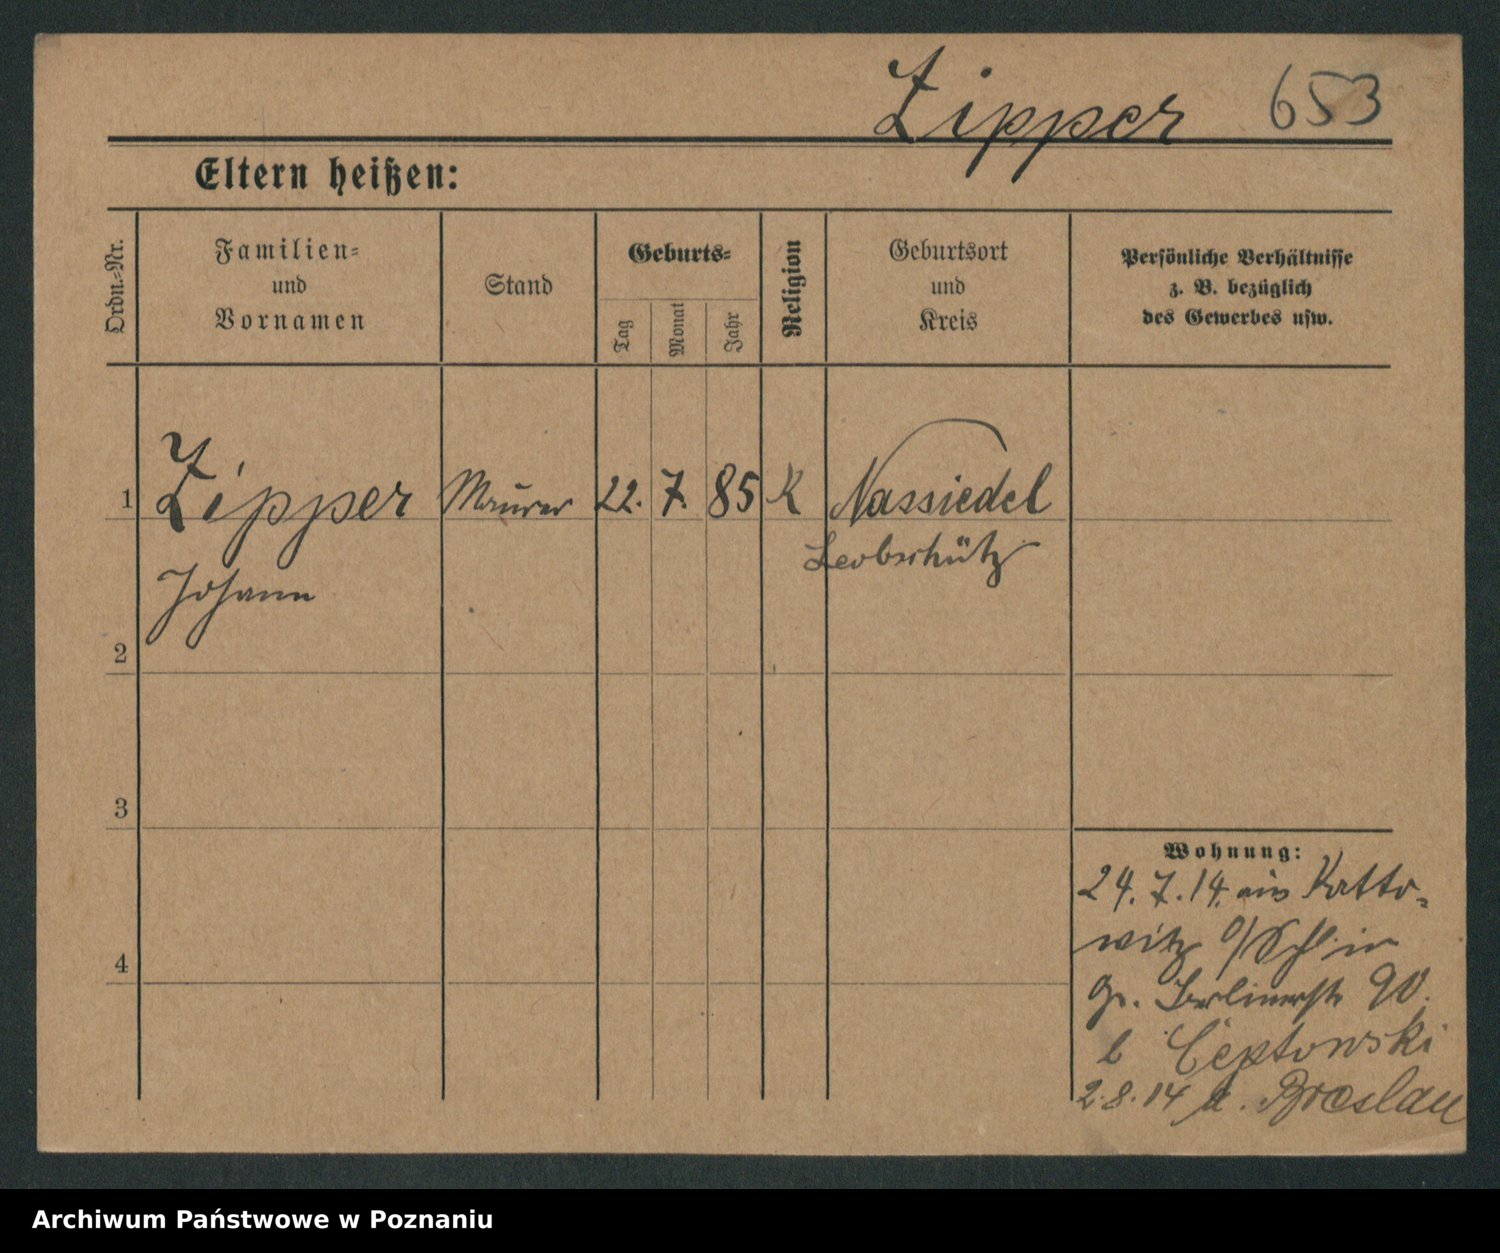 Zipper 653
Eltern heißen:
Ordn.-Nr.
Familien-
und
Vornamen
Stand
Geburts-
Tag
Monat
Jahr
Religion
Geburtsort
und
Kreis
Persönliche Verhältnisse
z. B. bezüglich
des Gewerbes usw.
1 Zipper Maurer 22. 7. 85 K Nassiedel
Leobschütz
Johann
2
3
4
Wohnung:
24. 7. 14. aus Katto-
witz O/Schl in
Berlinerstr 90.
b Ceptowski
2. 8. 14 n. Breslau
Archiwum Państwowe w Poznaniu